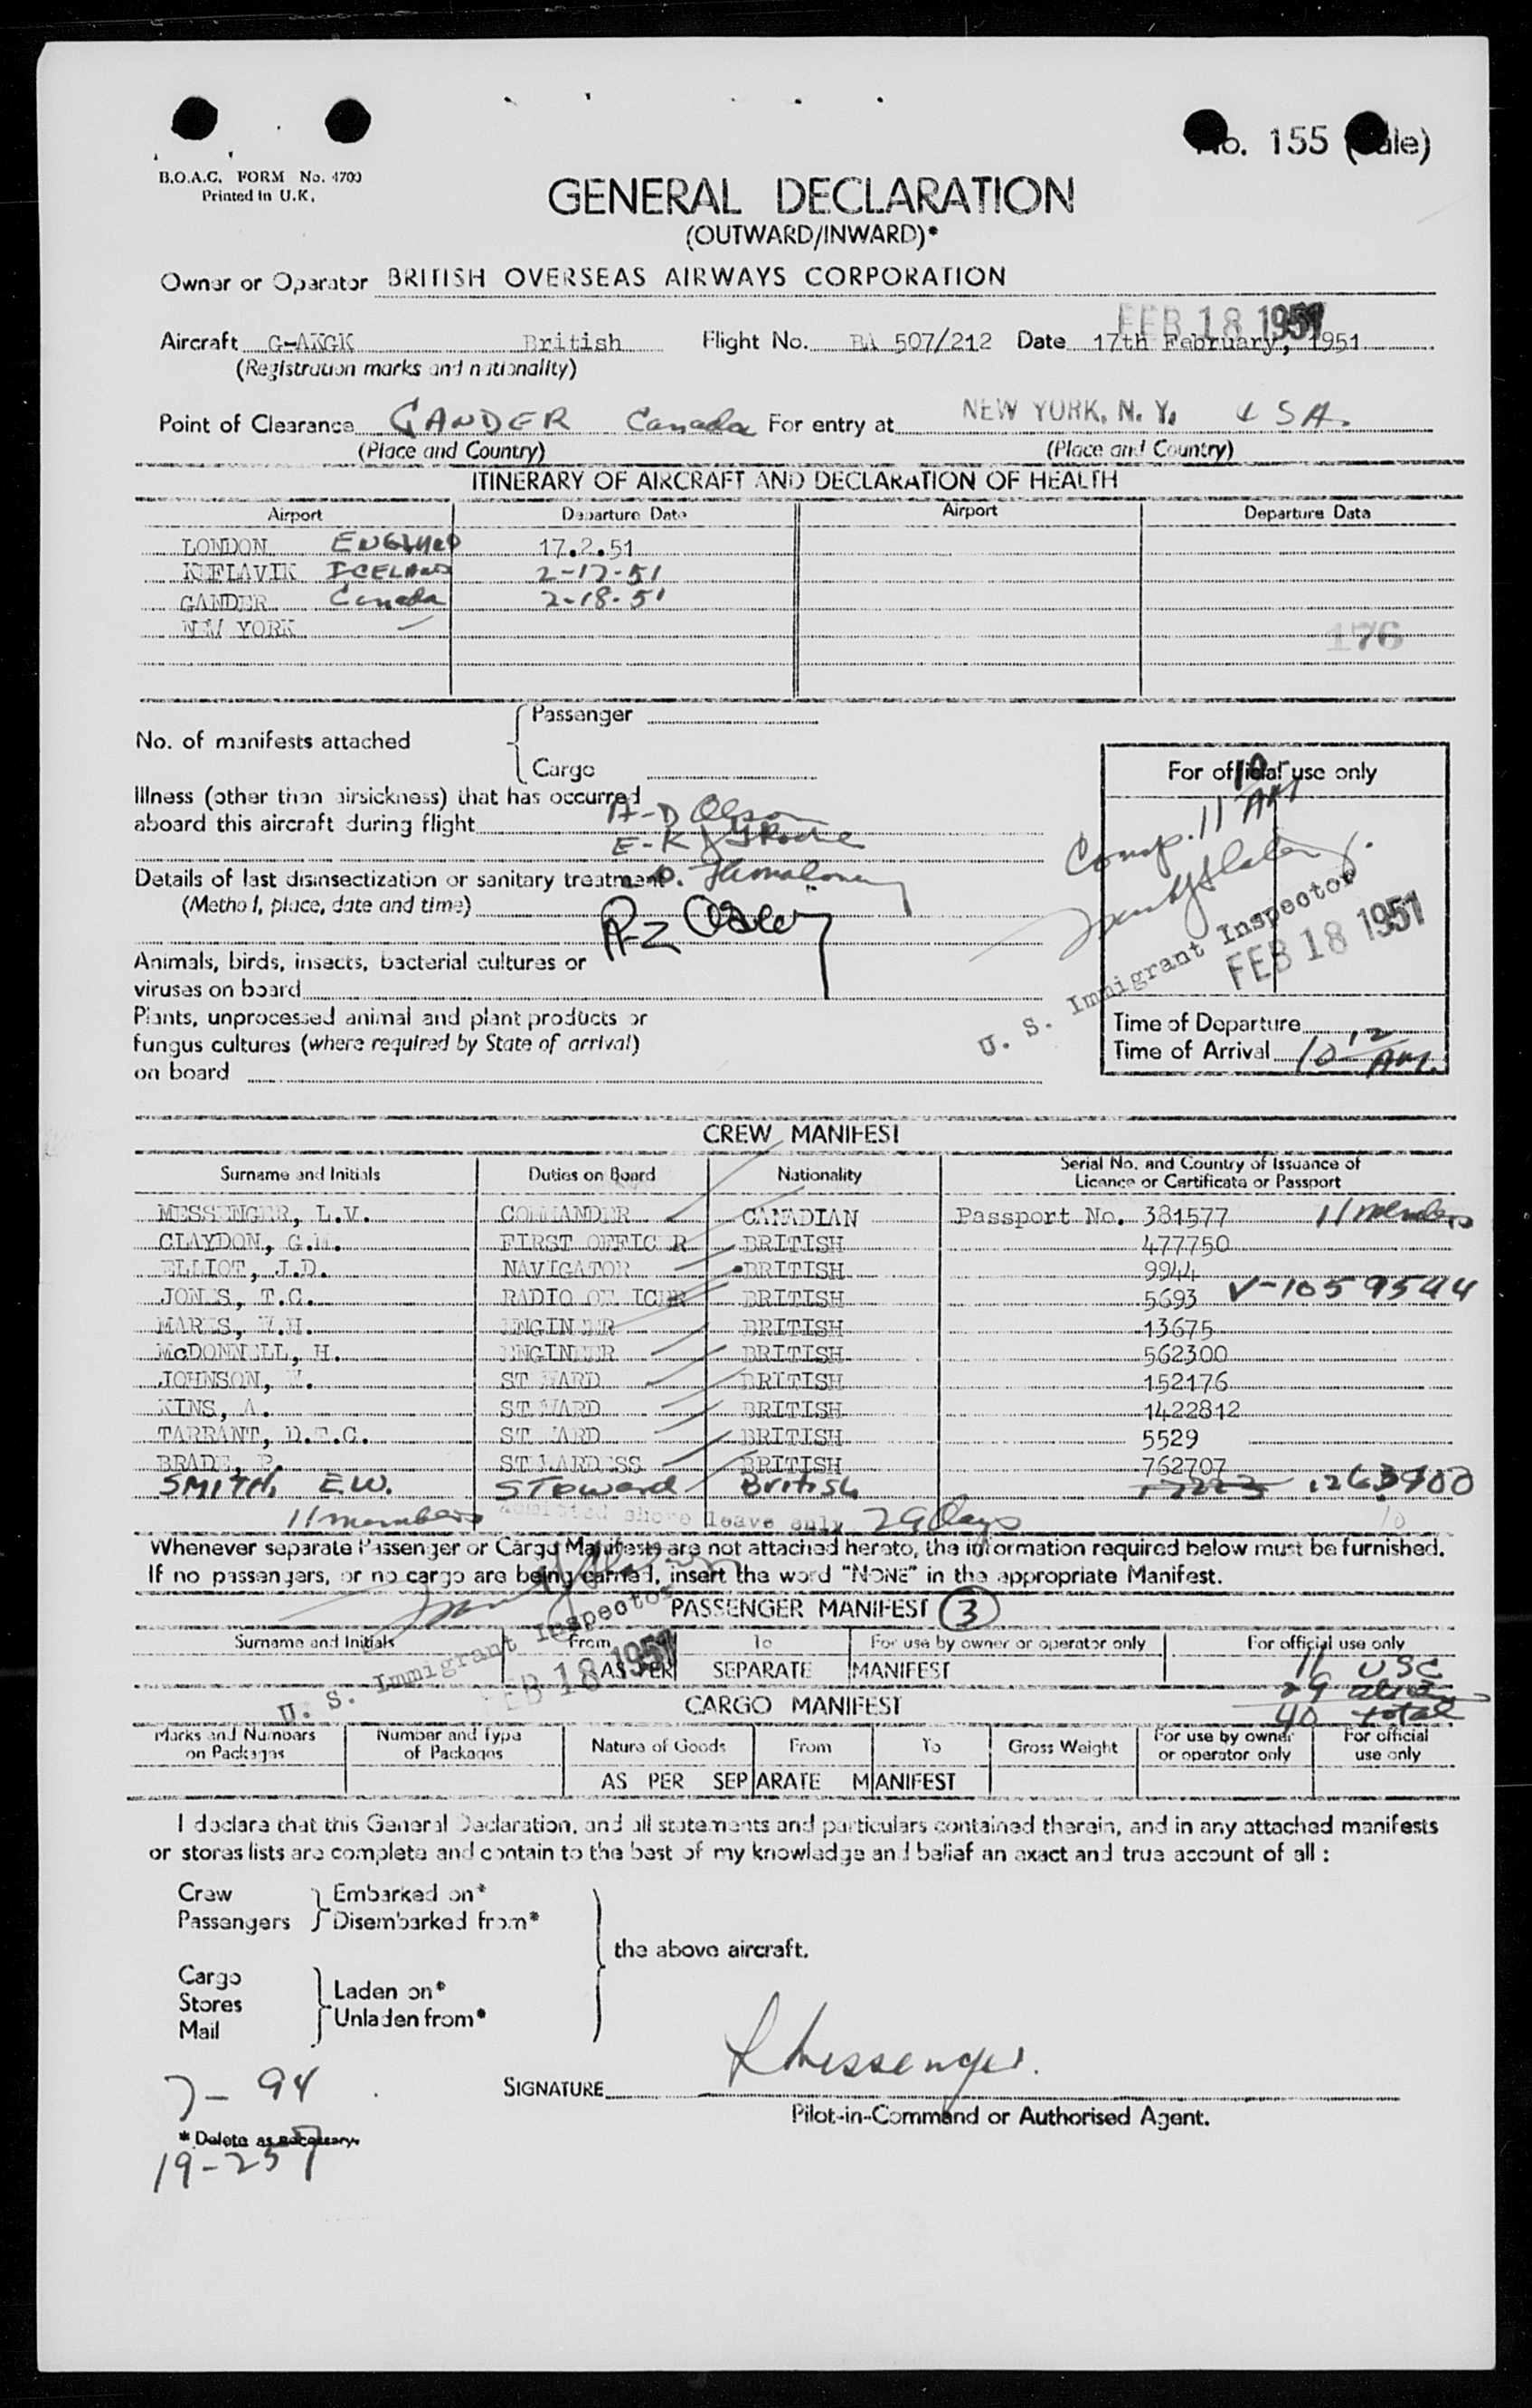 No. 155 (Sale)
B.O.A.C. FORM No. 4700
Printed in U.K.
GENERAL DECLARATION
(OUTWARD/INWARD)*
Owner or Operator BRITISH OVERSEAS AIRWAYS CORPORATION
FEB 18 1951
Aircraft G-AKGK British Flight No. BA 507/212 Date 17th February, 1951
(Registration marks and nationality)
Point of Clearance GANDER Canada For entry at NEW YORK, N. Y. USA.
(Place and Country) (Place and Country)
ITINERARY OF AIRCRAFT AND DECLARATION OF HEALTH
Airport Departure Date Airport Departure Data
LONDON ENGLAND 17.2.51
KEFLAVIK ICELAND 2-17-51
GANDER Canada 2-18-51
NEW YORK
176
Passenger
No. of manifests attached
Cargo
For official use only
10
Illness (other than airsickness) that has occurred
aboard this aircraft during flight
A-D Olson
E-K
Comp. 11 AM
Details of last disinsectization or sanitary treatment
(Method, place, date and time)
A-Z
U. S. Immigrant Inspector
FEB 18 1951
Animals, birds, insects, bacterial cultures or
viruses on board
Plants, unprocessed animal and plant products or
fungus cultures (where required by State of arrival)
on board
Time of Departure
Time of Arrival 10 12 AM.
CREW MANIFEST
Surname and Initials Duties on Board Nationality Serial No. and Country of Issuance of
Licence or Certificate or Passport
MESSENGER, L.V. COMMANDER CANADIAN Passport No. 381577 11 members
CLAYDON, G.M. FIRST OFFICER BRITISH 477750
ELLIOT, J.D. NAVIGATOR BRITISH 9944
JONES, T.C. RADIO OFFICER BRITISH 5693 V-1059544
ENGINEER BRITISH 13675
McDONNELL, H. ENGINEER BRITISH 562300
JOHNSON, STEWARD BRITISH 152176
KINS, A. STEWARD BRITISH 1422812
TARRANT, D.F.C. STEWARD BRITISH 5529
BRADE, P. STEWARDESS BRITISH 762707
SMITH, E.W. Steward British 1263900
11 members Admitted shore leave only 29 Days
10
Whenever separate Passenger or Cargo Manifests are not attached hereto, the information required below must be furnished.
If no passengers, or no cargo are being carried, insert the word "NONE" in the appropriate Manifest.
PASSENGER MANIFEST 3
U. S. Immigrant Inspector
FEB 18 1951
Surname and Initials From To For use by owner or operator only For official use only
AS PER SEPARATE MANIFEST
11 USC
29 aliens
40 total
CARGO MANIFEST
Marks and Numbers on Packages Number and Type of Packages Nature of Goods From To Gross Weight For use by owner or operator only For official use only
AS PER SEPARATE MANIFEST
I declare that this General Declaration, and all statements and particulars contained therein, and in any attached manifests
or stores lists are complete and contain to the best of my knowledge and belief an exact and true account of all :
Crew Embarked on*
Passengers Disembarked from*
the above aircraft.
Cargo
Stores Laden on*
Mail Unladen from*
7-94
SIGNATURE L Messenger.
Pilot-in-Command or Authorised Agent.
* Delete as necessary.
19-257